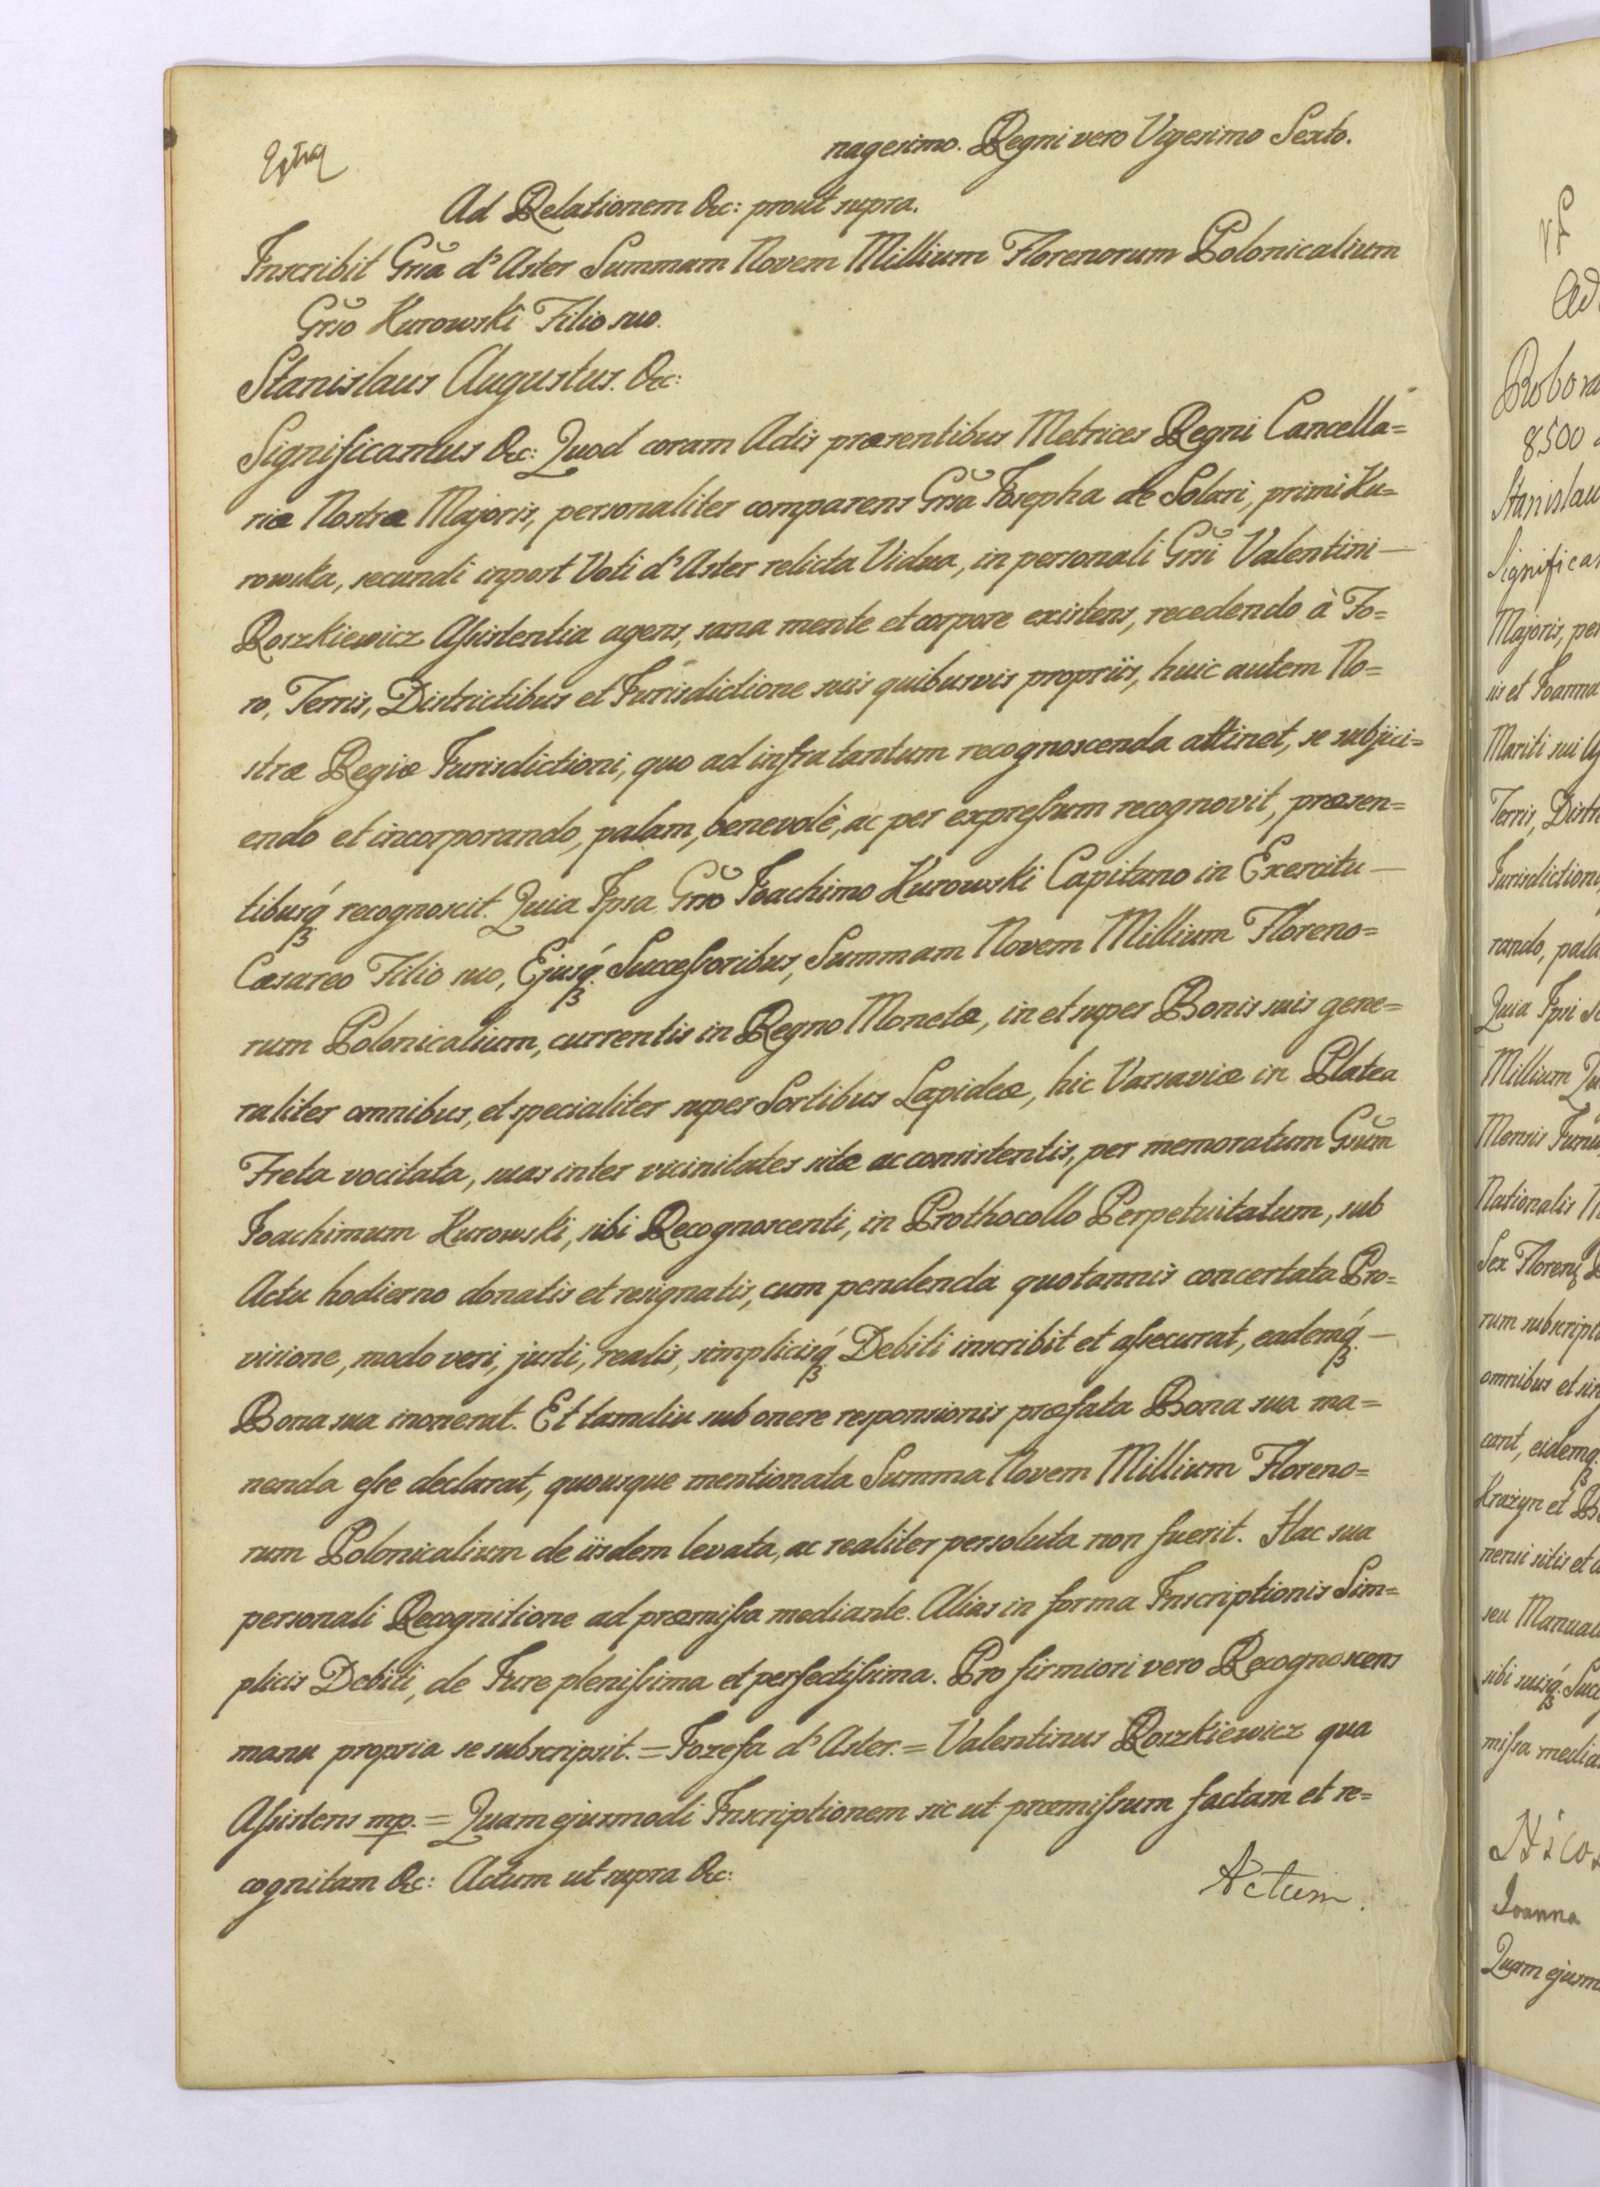 nagesimo. Regni vero Vigesimo Sexto.
Ad Relationem &c: prout supra.
Inscribit Gnsa d'Aster Summam Novem Millium Florenorum Polonicalium
Gnso Kurowski Filio suo.
Stanislaus Augustus. &c:
Significamus &c: Quod coram Actis præsentibus Metrices Regni Cancella=
riæ Nostræ Majoris, personaliter comparens Gnsa Josepha de Solari, primi Ku=
rowska, secundi inpost Voti d'Aster relicta Vidua, in personali Gnsi Valentini —
Roszkiewicz Assistentia agens, sana mente et corpore existens, recedendo à Fo=
ro, Terris, Districtibus et Jurisdictione suis quibusvis propriis, huic autem No=
stræ Regiæ Jurisdictioni, quo ad infra tantum recognoscenda attinet, se subjici=
endo et incorporando, palam, benevolè, ac per expressum recognovit, præsen=
tibusq́ recognoscit. Quia Ipsa Gnso Joachimo Kurowski Capitano in Exercitu —
Cæsareo Filio suo, Ejusq́ Successoribus, Summam Novem Millium Floreno=
rum Polonicalium, currentis in Regno Monetæ, in et super Bonis suis gene=
raliter omnibus, et specialiter super Sortibus Lapideæ, hic Varsaviæ in Platea
Freta vocitata, suas inter vicinitates sitæ ac consistentis, per memoratum Gnsum
Joachimum Kurowski, sibi Recognoscenti, in Prothocollo Perpetuitatum, sub
Actu hodierno donatis et resignatis, cum pendenda quotannis concertata Pro=
visione, modo veri, justi, realis, simplicisq́ Debiti inscribit et assecurat, eademq́ —
Bona sua inonerat. Et tamdiu sub onere responsionis præfata Bona sua ma=
nenda esse declarat, quousque mentionata Summa Novem Millium Floreno=
rum Polonicalium de iisdem levata, ac realiter persoluta non fuerit. Hac sua
personali Recognitione ad præmissa mediante. Alias in forma Inscriptionis Sim=
plicis Debiti, de Jure plenissima et perfectissima. Pro firmiori vero Recognoscens
manu propria se subscripsit. = Jozefa d'Aster. = Valentinus Roszkiewicz qua
Assistens mp. = Quam ejusmodi Inscriptionem sic ut præmissum factam et re=
cognitam &c: Actum ut supra &c:
Actum.
Ad
Robora
8500
Stanislau
Significa
Majoris, per
iis et Joanna
Mariti sui As
Terris, Distri
Jurisdictioni
rando, pala
Quia Ipsi
Millium Qu
Mensis Junii
Nationalis
Sex Floreni
rum subscript
omnibus et sin
cant, eidemq́
Krażyn et
nensi sitis et
seu Manual
sibi suisq́ Suc
missa media
Joanna
Quam ejusm